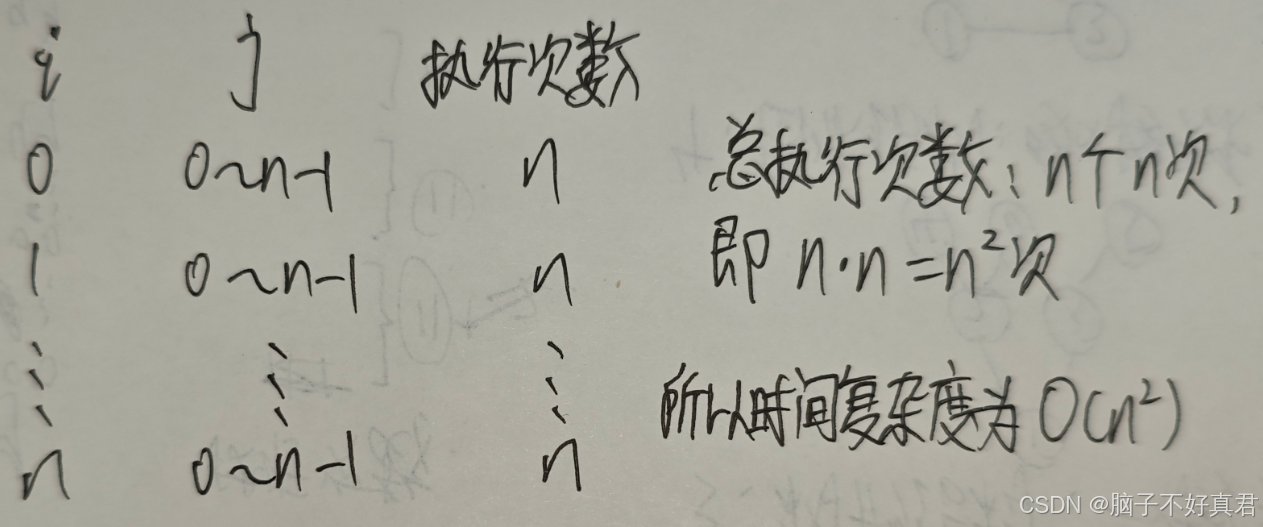 i j 执行次数
0 0~n-1 n
1 0~n-1 n
⋮ ⋮ ⋮
n 0~n-1 n
总执行次数：n个n次，
即 n·n=n²次
所以时间复杂度为O(n²)
CSDN @脑子不好真君